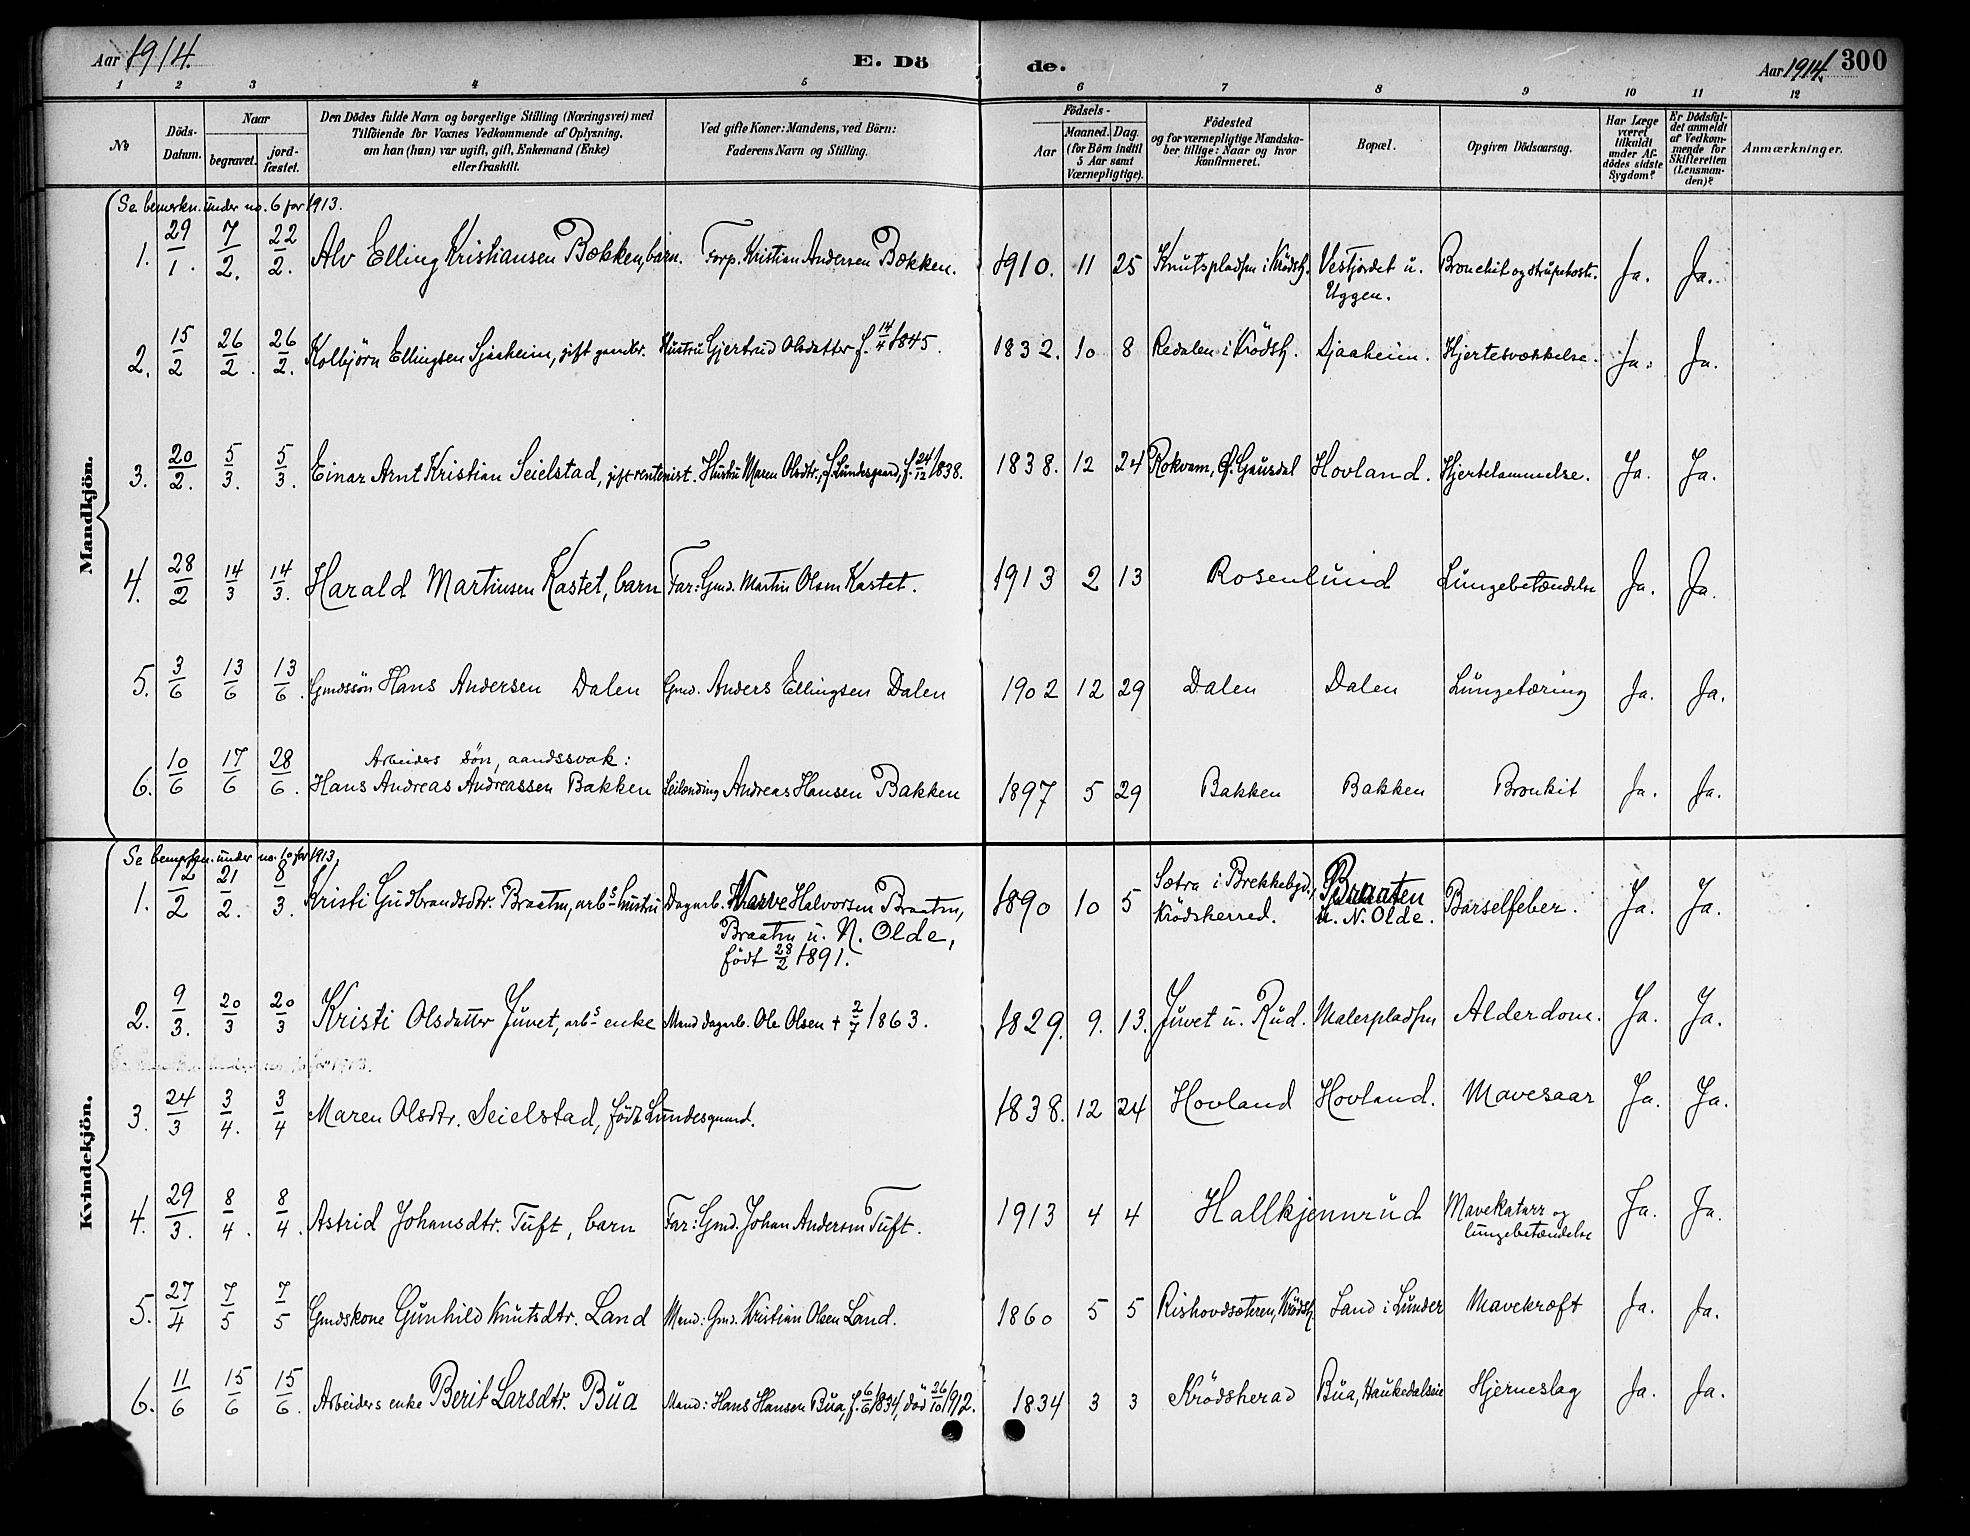 Aar 1914.
E. Dö
de.
Aar 1914. 300
1 2 3 4 5 6 7 8 9 10 11 12
No
Döds-Datum.
Naar
begravet.
jord-fæstet.
Den Dödes fulde Navn og borgerlige Stilling (Næringsvei) med
Tilföiende for Voxnes Vedkommende af Oplysning,
om han (hun) var ugift, gift, Enkemand (Enke)
eller fraskilt.
Ved gifte Koner: Mandens, ved Börn:
Faderens Navn og Stilling.
Födsels-
Aar
Maaned. Dag.
(for Börn indtil
5 Aar samt
Værnepligtige).
Födested
og for værnepligtige Mandska-
ber tillige: Naar og hvor
konfirmeret.
Bopæl.
Opgiven Dödsaarsag.
Har Læge
været
tilkaldt
under Af-
dödes sidste
Sygdom?
Er Dödsfal-
det anmeldt
af Vedkom-
mende for
Skifteretten
(Lensman-
den)?
Anmærkninger.
Mandkjön.
Se bemerkn. under no. 6 for 1913.
1. 29/1. 7/2. 22/2. Alv Elling Kristiansen Bækken, barn. Forp. Kristian Andersen Bækken. 1910. 11 25 Knutspladsen i Krödsh. Vestjordet u. Bronchit og strupehoste. Ja. Ja.
Uggen.
2. 15/2 26/2. 26/2. Kolbjörn Ellingsen Sjaaheim, gift gaardbr. Hustru Gjertrud Olsdatter f. 14/4 1845. 1832. 10 8 Redalen i Krödsh. Sjaaheim. Hjertesvækkelse. Ja. Ja.
3. 20/2. 5/3. 5/3. Einar Arnt Kristian Seielstad, gift rentenist. Hustru Maren Olsdtr., f. Lundesgaard, f. 24/12 1838. 1838. 12 24 Rokvam, Ø. Gausdal Hovland. Hjertelammelse. Ja. Ja.
4. 28/2 14/3 14/3. Harald Martinsen Kastet, barn Far: Gmd. Martin Olsen Kastet. 1913 2 13 Rosenlund Lungebetændelse Ja. Ja.
5. 3/6 13/6 13/6. Gmdssön Hans Andersen Dalen Gmd. Anders Ellingsen Dalen 1902 12 29 Dalen Dalen Lungetæring Ja. Ja.
Arbeiders sön, aandssvak:
6. 10/6 17/6 28/6. Hans Andreas Andreassen Bakken Leilending Andreas Hansen Bakken 1897 5 29 Bakken Bakken Bronkit Ja. Ja.
Kvindekjön.
Se bemerkn. under no. 10 for 1913.
1. 12/2 21/2. 8/3. Kristi Gudbrandsdtr. Braaten, arbs hustru Dagarb. Narve Halvorsen Braaten, 1890 10 5 Sætra i Brekkebygd, Braaten Barselfeber. Ja. Ja.
Braaten u. N. Olde, Krödsherred. u. N. Olde.
födt 28/2 1891.
2. 9/3. 20/3 20/3 Kristi Olsdatter Juvet, arbs enke Mand dagarb. Ole Olsen + 2/7 1863. 1829. 9. 13. Juvet u. Rud. Malerpladsen Alderdom. Ja. Ja.
3. 24/3 3/4. 3/4 Maren Olsdtr. Seielstad, födt Lundesgaard. 1838. 12 24 Hovland Hovland. Mavesaar Ja. Ja.
4. 29/3. 8/4. 8/4. Astrid Johansdtr. Tuft, barn Far: Gmd. Johan Andersen Tuft. 1913 4 4 Hallkjennrud Mavekatarr og Ja. Ja.
lungebetændelse
5. 27/4 7/5 7/5 Gmdskone Gunhild Knutsdtr. Land Mand: Gmd. Kristian Olsen Land. 1860 5 5 Rishovdsæteren, Krödsh. Land i Lunder Mavekræft Ja. Ja.
6. 11/6 15/6 15/6. Arbeiders enke Berit Larsdtr. Bua Mand: Hans Hansen Bua, f. 6/6 1834, död 26/10 1912. 1834 3 3 Krödsherad Bua, Haukedalseie Hjerneslag Ja. Ja.